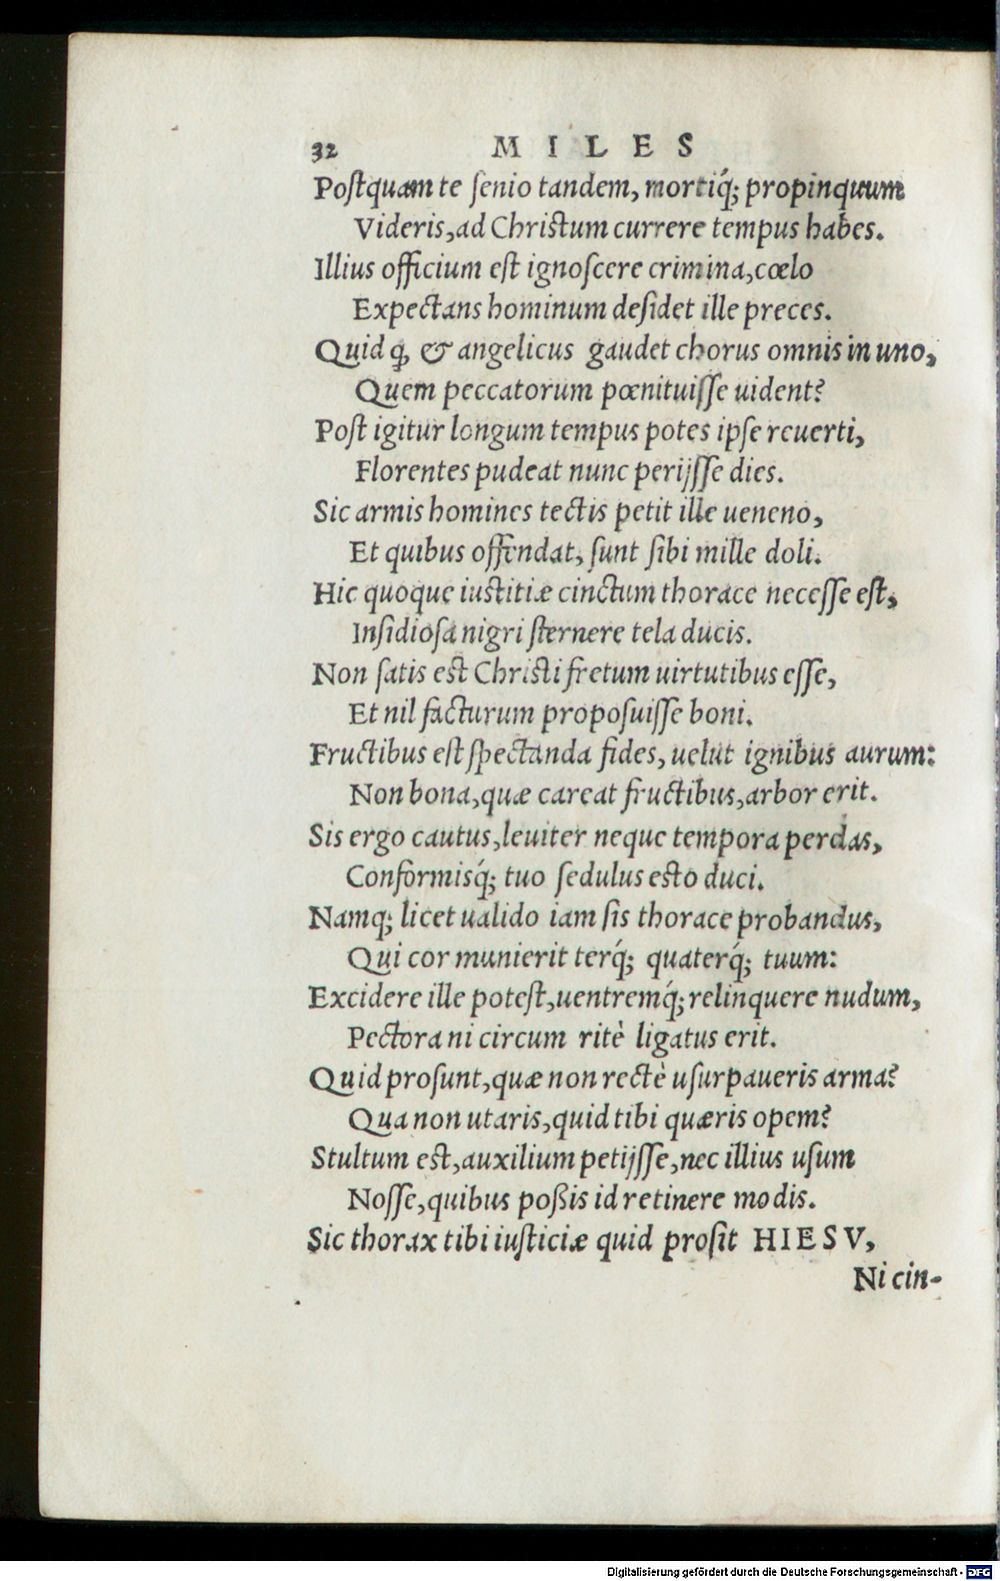 32 MILES
Poſtquam te ſenio tandem, mortiq́; propinquum
Videris, ad Chriſtum currere tempus habes.
Illius officium eſt ignoſcere crimina, cœlo
Expectans hominum deſidet ille preces.
Quid ꝙ, & angelicus gaudet chorus omnis in uno,
Quem peccatorum pœnituiſſe uident?
Poſt igitur longum tempus potes ipſe reuerti,
Florentes pudeat nunc perijſſe dies.
Sic armis homines tectis petit ille ueneno,
Et quibus offendat, ſunt ſibi mille doli.
Hic quoque iuſtitiæ cinctum thorace neceſſe eſt,
Inſidioſa nigri ſternere tela ducis.
Non ſatis eſt Chriſti fretum uirtutibus eſſe,
Et nil facturum propoſuiſſe boni.
Fructibus eſt ſpectanda fides, uelut ignibus aurum:
Non bona, quæ careat fructibus, arbor erit.
Sis ergo cautus, leuiter neque tempora perdas,
Conformisq́; tuo ſedulus eſto duci.
Namq; licet ualido iam ſis thorace probandus,
Qui cor munierit terq́; quaterq́; tuum:
Excidere ille poteſt, uentremq́; relinquere nudum,
Pectora ni circum ritè ligatus erit.
Quid proſunt, quæ non rectè uſurpaueris arma?
Qua non utaris, quid tibi quæris opem?
Stultum eſt, auxilium petijſſe, nec illius uſum
Noſſe, quibus poßis id retinere modis.
Sic thorax tibi iuſticiæ quid proſit HIESV,
Ni cin-
Digitalisierung gefördert durch die Deutsche Forschungsgemeinschaft - DFG